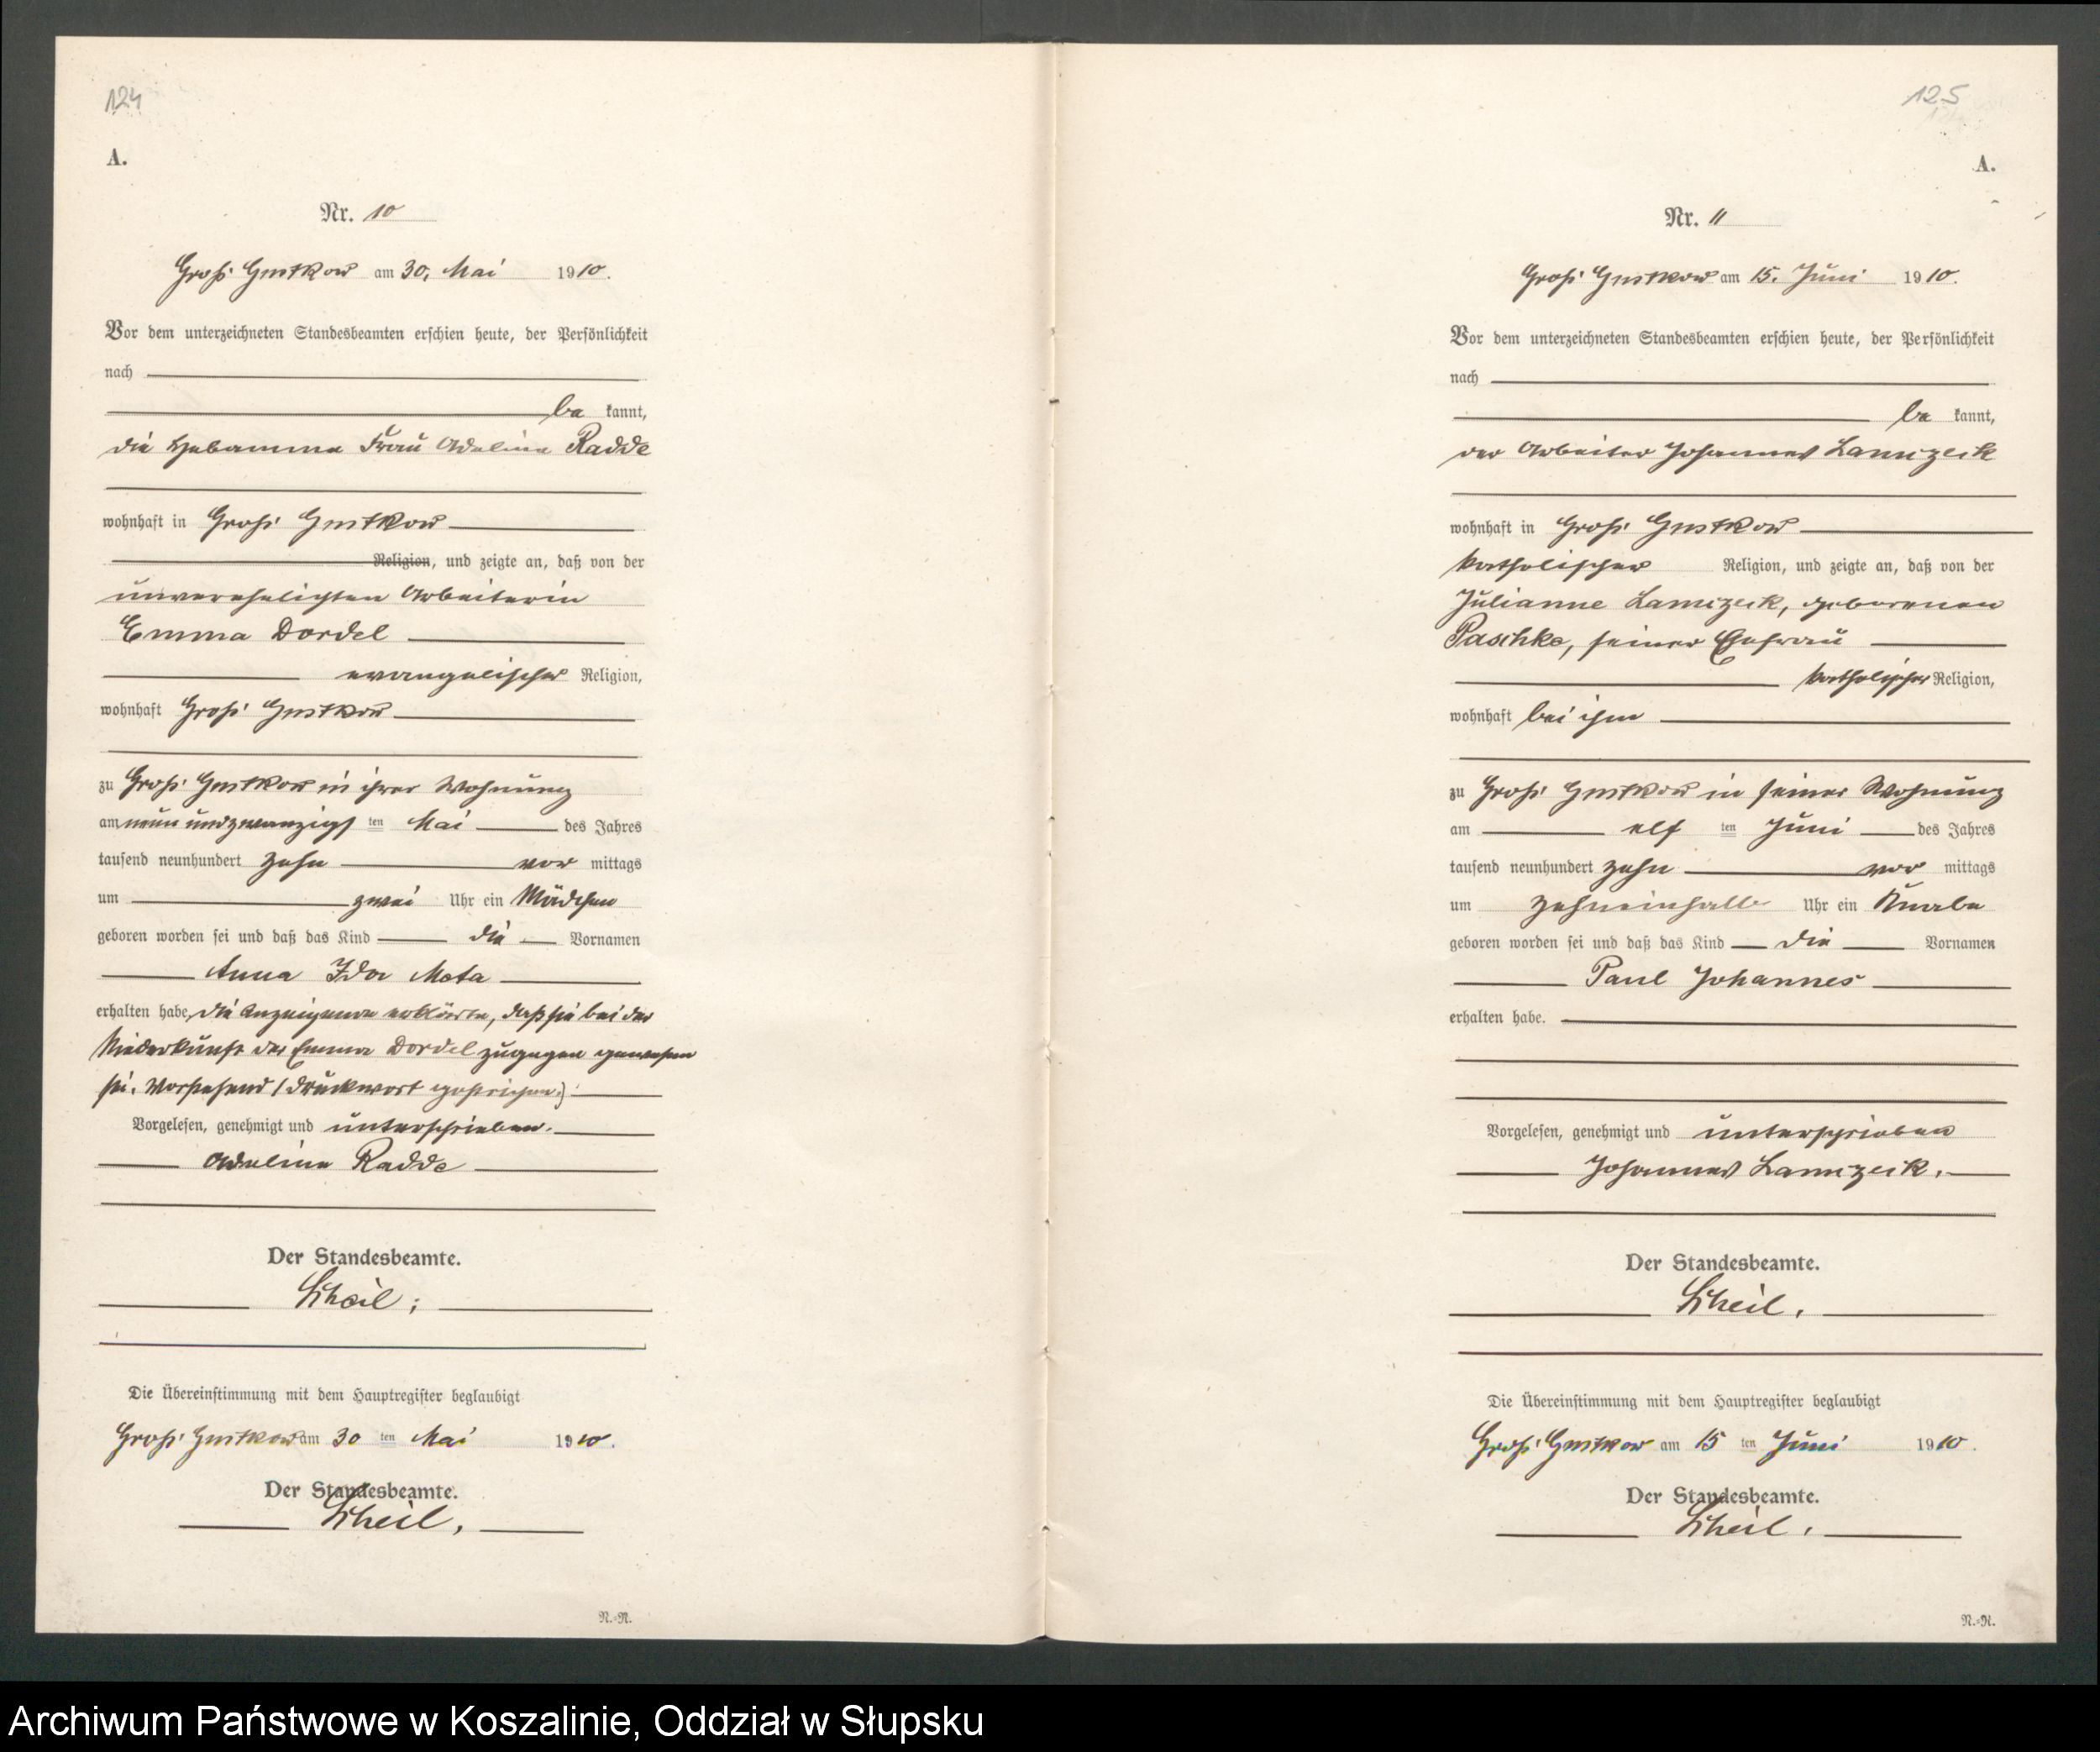 124
A.
Nr. 10
Groß Gustkow am 30. Mai 1910.
Vor dem unterzeichneten Standesbeamten erschien heute, der Persönlichkeit
nach
be kannt,
die Hebamme Frau Adeline Radde
wohnhaft in Groß Gustkow
Religion, und zeigte an, daß von der
unverehelichten Arbeiterin
Emma Dordel
evangelischer Religion,
wohnhaft Groß Gustkow
zu Groß Gustkow in ihrer Wohnung
am neun und zwanzigs ten Mai des Jahres
tausend neunhundert zehn vor mittags
um zwei Uhr ein Mädchen
geboren worden sei und daß das Kind die Vornamen
Anna Ida Meta
erhalten habe, die Anzeigende erklärte, daß sie bei der
Niederkunft der Emma Dordel zugegen gewesen
sei. Vorstehend 1 Druckwort gestrichen.
Vorgelesen, genehmigt und unterschrieben.
Adeline Radde
Der Standesbeamte.
Scheil.
Die Übereinstimmung mit dem Hauptregister beglaubigt
Groß Gustkow am 30 ten Mai 1910.
Der Standesbeamte.
Scheil.
N.=N.
125
A.
Nr. 11
Groß Gustkow am 15. Juni 1910.
Vor dem unterzeichneten Standesbeamten erschien heute, der Persönlichkeit
nach
be kannt,
der Arbeiter Johannes
wohnhaft in Groß Gustkow
katholischer Religion, und zeigte an, daß von der
Julianne geborenen
Paschke, seiner Ehefrau
katholischer Religion,
wohnhaft bei ihm
zu Groß Gustkow in seiner Wohnung
am elf ten Juni des Jahres
tausend neunhundert zehn vor mittags
um zehneinhalb Uhr ein Knabe
geboren worden sei und daß das Kind die Vornamen
Paul Johannes
erhalten habe.
Vorgelesen, genehmigt und unterschrieben
Johannes
Der Standesbeamte.
Scheil.
Die Übereinstimmung mit dem Hauptregister beglaubigt
Groß Gustkow am 15 ten Juni 1910.
Der Standesbeamte.
Scheil.
N.=N.
Archiwum Państwowe w Koszalinie, Oddział w Słupsku